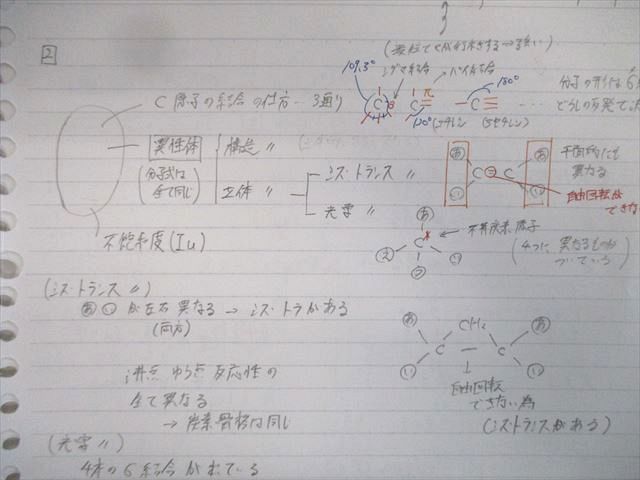 2
シグマ結合
パイ結合
109.3°
180°
120°
C 原子の結合の仕方… 3通り
C σ
C π
- C ≡ …
(エチレン アセチレン)
分子の形は
異性体
(分子式は
全て同じ)
構造 〃
立体 〃
シス・トランス 〃
光学 〃
不飽和度 (Iu)
あ あ
C = C
い い
異なる
自由回転が
できない
あ
C*
え う い
不斉炭素原子
(4つに異なるものが
ついている)
(シス・トランス 〃)
あ い が左右異なる → シス・トラがある
(両方)
沸点 ゆう点 反応性の
全て異なる
→ 炭素骨格は同じ
あ CH2 あ
C — C
い い
自由回転
できない為
(シストランスがある)
(光学 〃)
4本の σ 結合が出ている